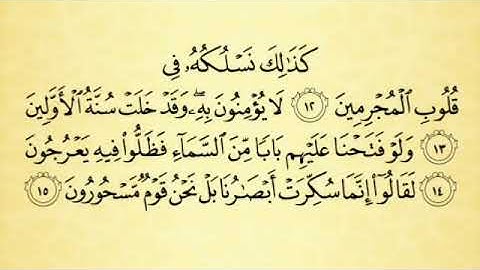 كَذَٰلِكَ نَسۡلُكُهُۥ فِي
قُلُوبِ ٱلۡمُجۡرِمِينَ ١٢ لَا يُؤۡمِنُونَ بِهِۦ وَقَدۡ خَلَتۡ سُنَّةُ ٱلۡأَوَّلِينَ
١٣ وَلَوۡ فَتَحۡنَا عَلَيۡهِم بَابٗا مِّنَ ٱلسَّمَآءِ فَظَلُّواْ فِيهِ يَعۡرُجُونَ
١٤ لَقَالُوٓاْ إِنَّمَا سُكِّرَتۡ أَبۡصَٰرُنَا بَلۡ نَحۡنُ قَوۡمٞ مَّسۡحُورُونَ ١٥